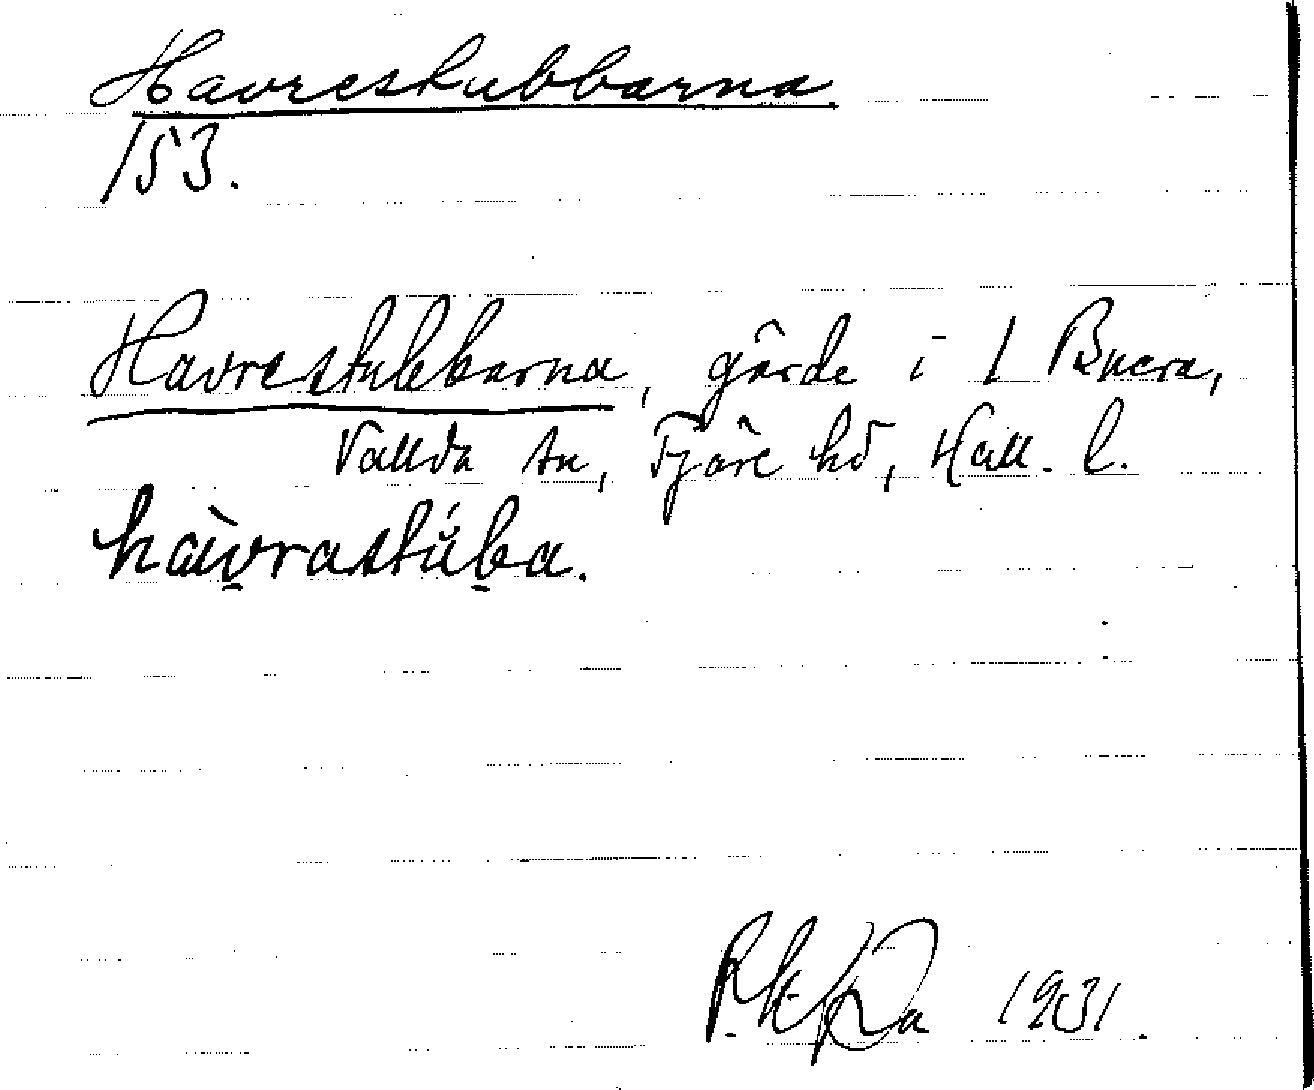 Havrestubbarna
153.
Havrestubbarna, gärde i 1 Buera,
Vallda sn, Fjäre hd, Hall. l.
hàvrastúba.
1931.